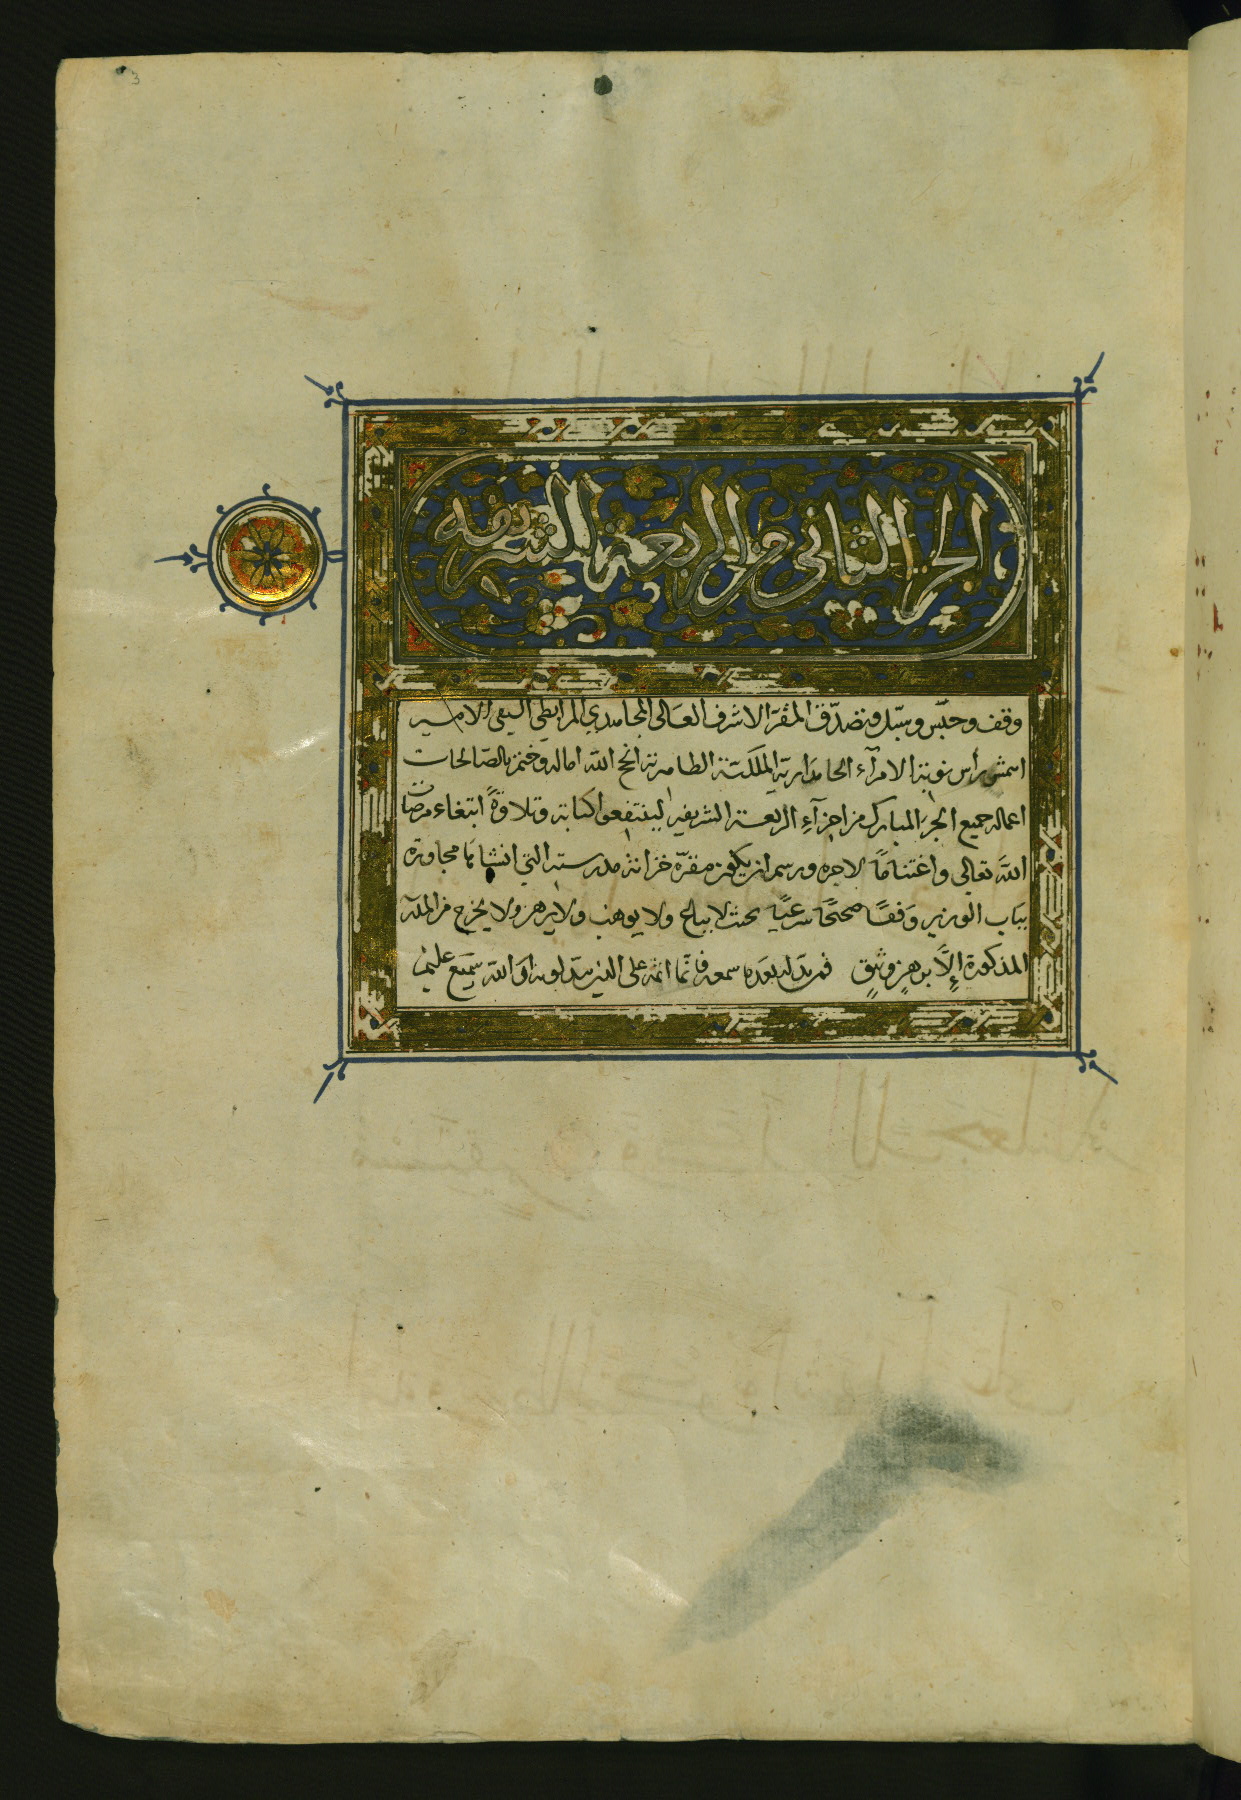 3
الجزء الثاني من الربعة الشريفة
وقف وحبّس وسبّل وتصدّق المقرّ الاشرف العالى المجاهدي المرابطي السيفي الامير
اسمش رأس نوبة الامرآء الجامدارية الملكيّة الظاهرية انجح الله اماله وختم بالصّالحات
اعماله جميع الجزء المبارك من اجزآء الربعة الشريفة لينتفع كتابة وتلاوةً ابتغاء مرضات
الله تعالى واغتنامًا لاجره ورسم ان يكون مقرّه خزانة مدرسته التي انشاها مجاورة
بباب الوزير وَقفًا صحيحًا شرعيًا بحيث لا يباع ولا يوهب ولا يرهن ولا يخرج من المدرسة
المذكورة إلاّ برهنٍ وثيقٍ فمن بدله بعد ما سمعه فانّما اثمه على الذين يبدّلونه ان الله سميع عليم